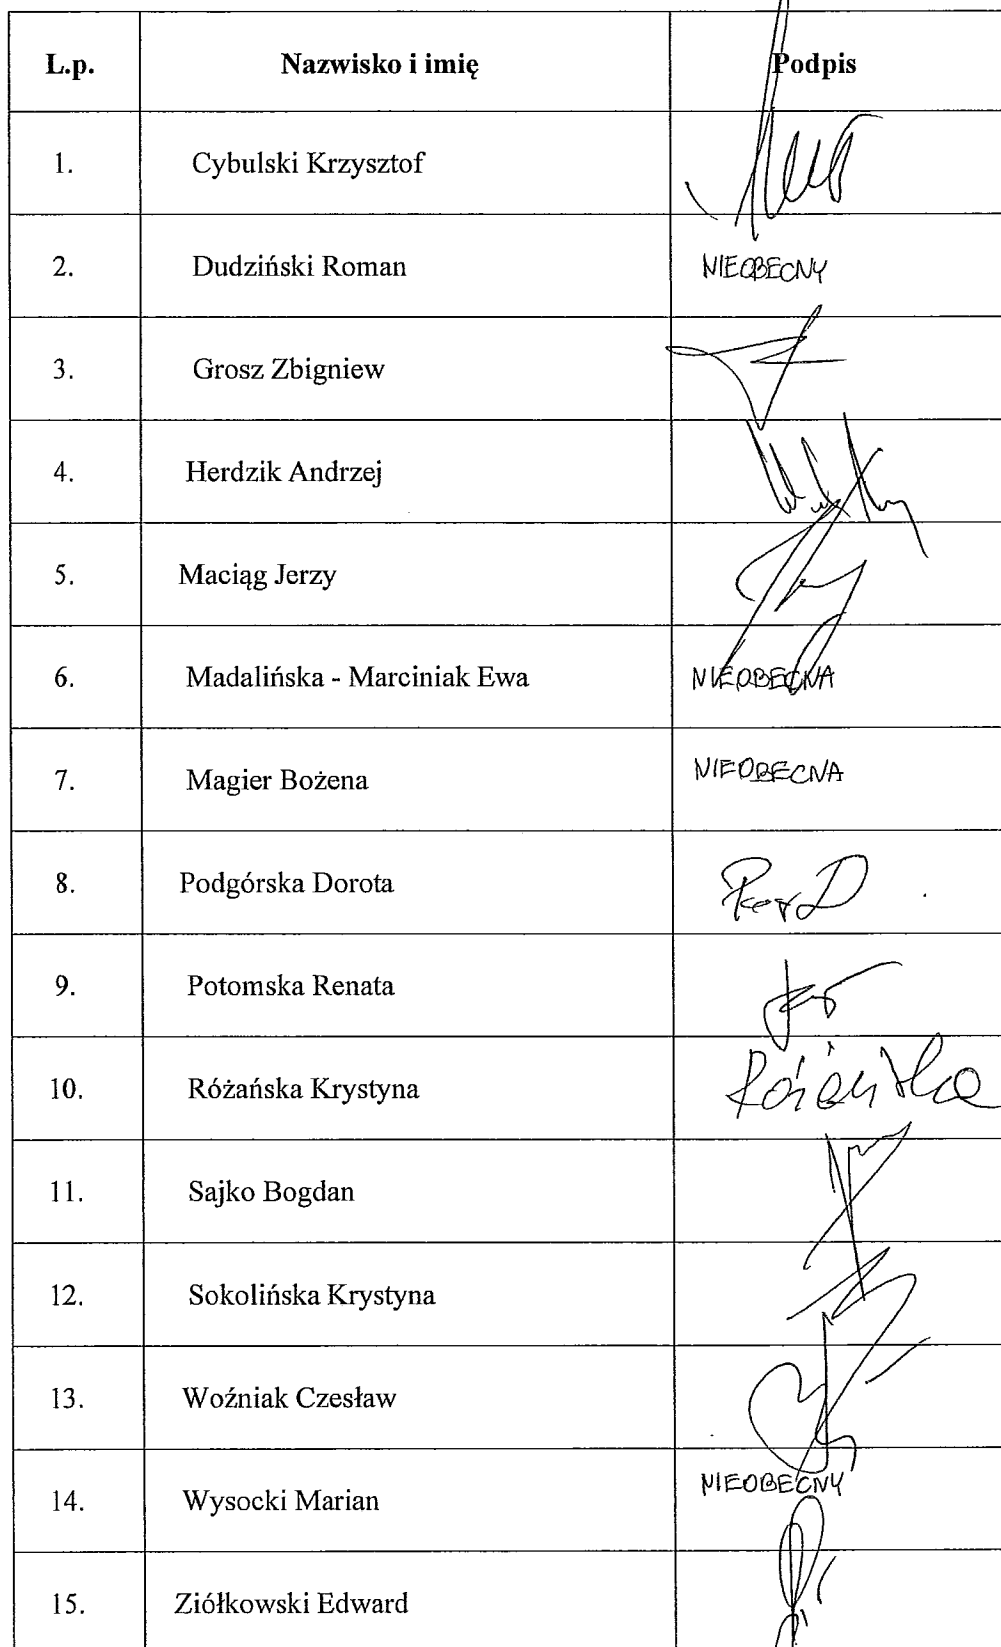 L.p. Nazwisko i imię Podpis
1. Cybulski Krzysztof
2. Dudziński Roman NIEOBECNY
3. Grosz Zbigniew
4. Herdzik Andrzej
5. Maciąg Jerzy
6. Madalińska - Marciniak Ewa NIEOBECNA
7. Magier Bożena NIEOBECNA
8. Podgórska Dorota
9. Potomska Renata
10. Różańska Krystyna Różańska
11. Sajko Bogdan
12. Sokolińska Krystyna
13. Woźniak Czesław
14. Wysocki Marian NIEOBECNY
15. Ziółkowski Edward